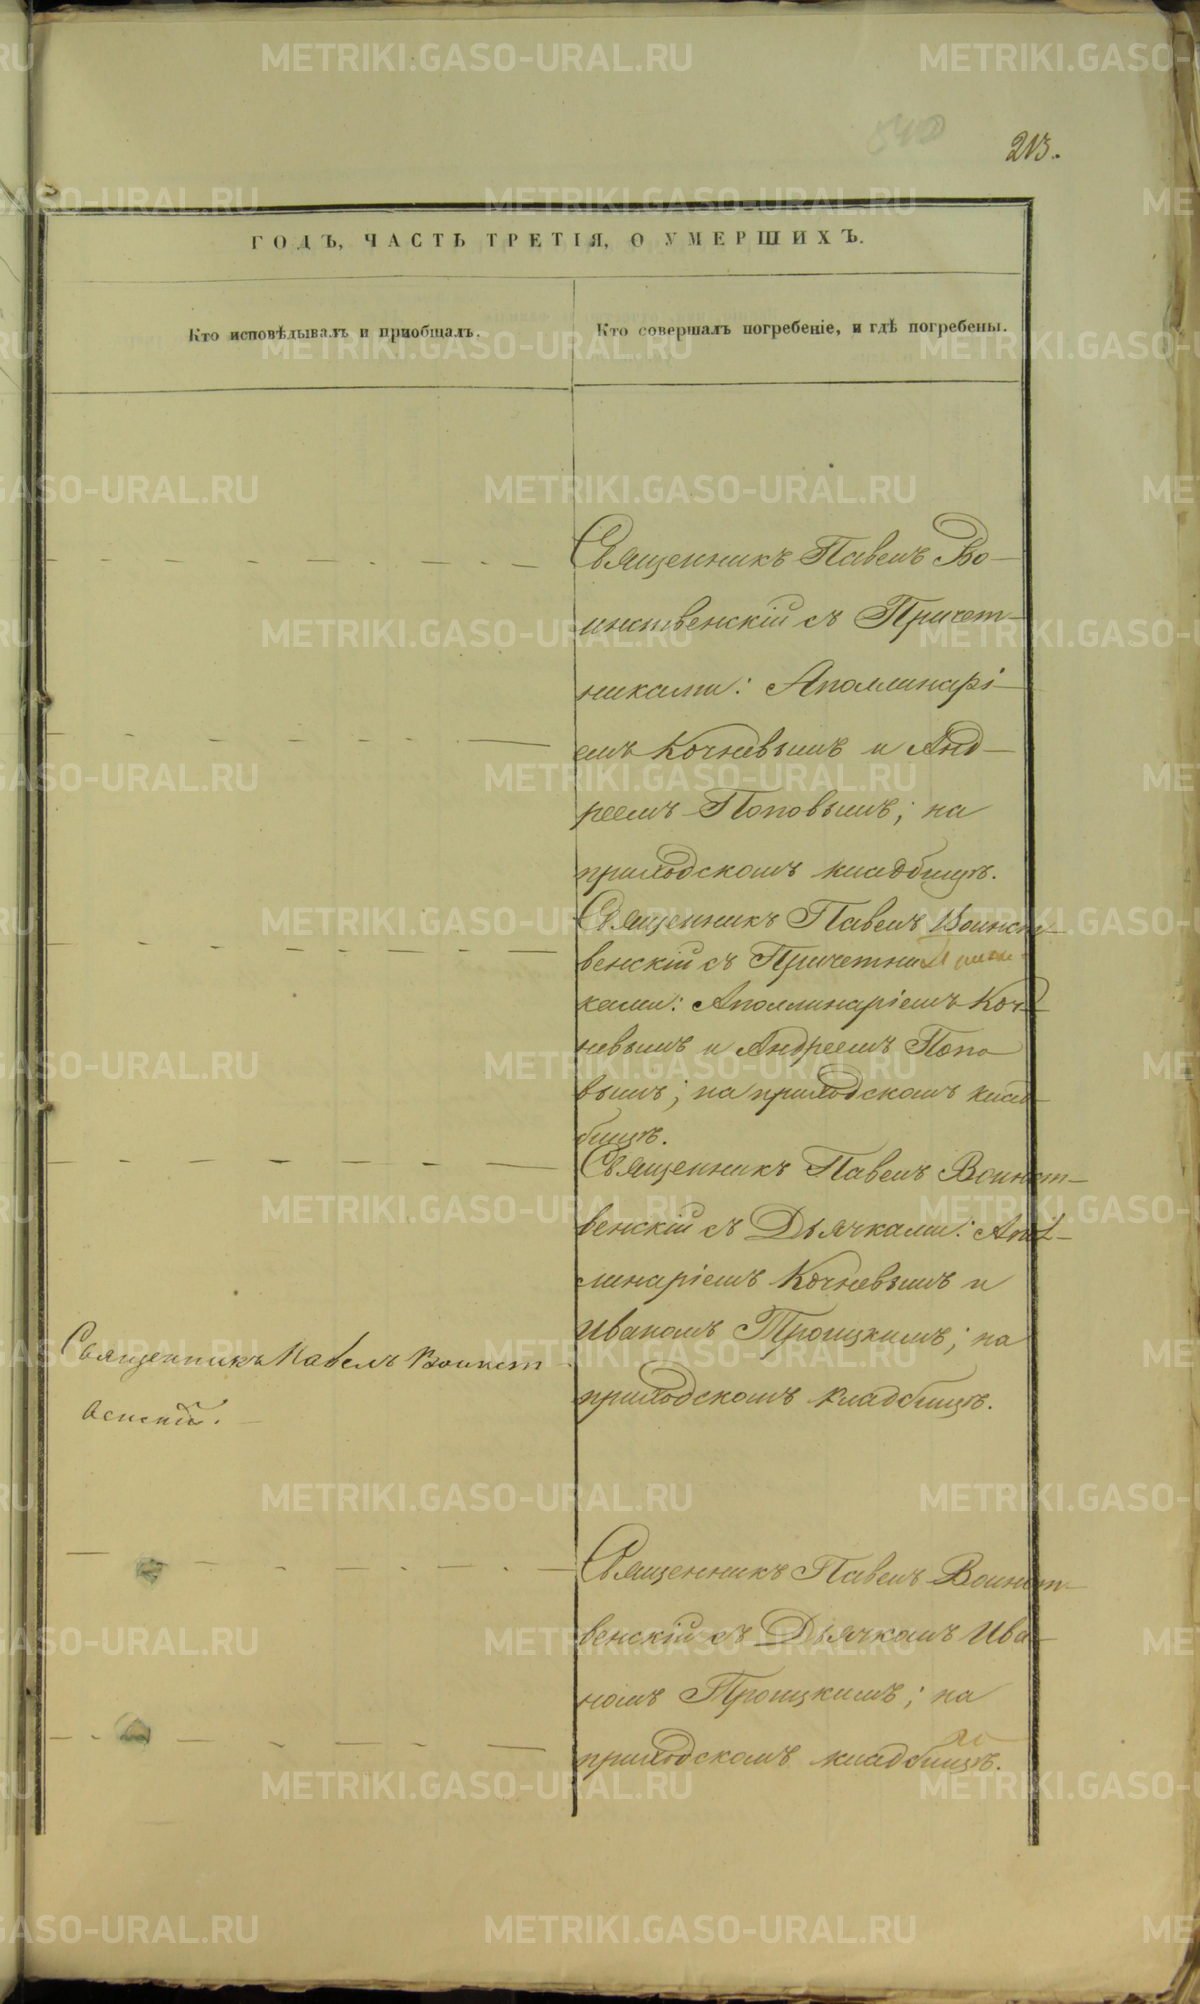 213.
ГОДЪ, ЧАСТЬ ТРЕТІЯ, О УМЕРШИХЪ.
Кто исповѣдывалъ и приобщалъ.
Кто совершалъ погребеніе, и гдѣ погребены.
Священникъ Павелъ Во-
инственскій съ Причет-
никами: Аполлинарі-
емъ Кочневымъ и Анд-
реемъ Поповымъ; на
приходскомъ кладбищѣ.
Священникъ Павелъ Воинст-
венскій съ Причетни
ками: Аполлинаріемъ Коч-
невымъ и Андреемъ Попо
вымъ; на приходскомъ клад-
бищѣ.
Священникъ Павелъ Воинст-
венскій съ Дьячками: Апол-
линаріемъ Кочневымъ и
Иваномъ Троицкимъ; на
приходскомъ кладбищѣ.
Священникъ Павелъ Воинст
венскій.
Священникъ Павелъ Воинст-
венскій съ Дьячкомъ Ива-
номъ Троицкимъ; на
приходскомъ кладбищѣ.
METRIKI.GASO-URAL.RU